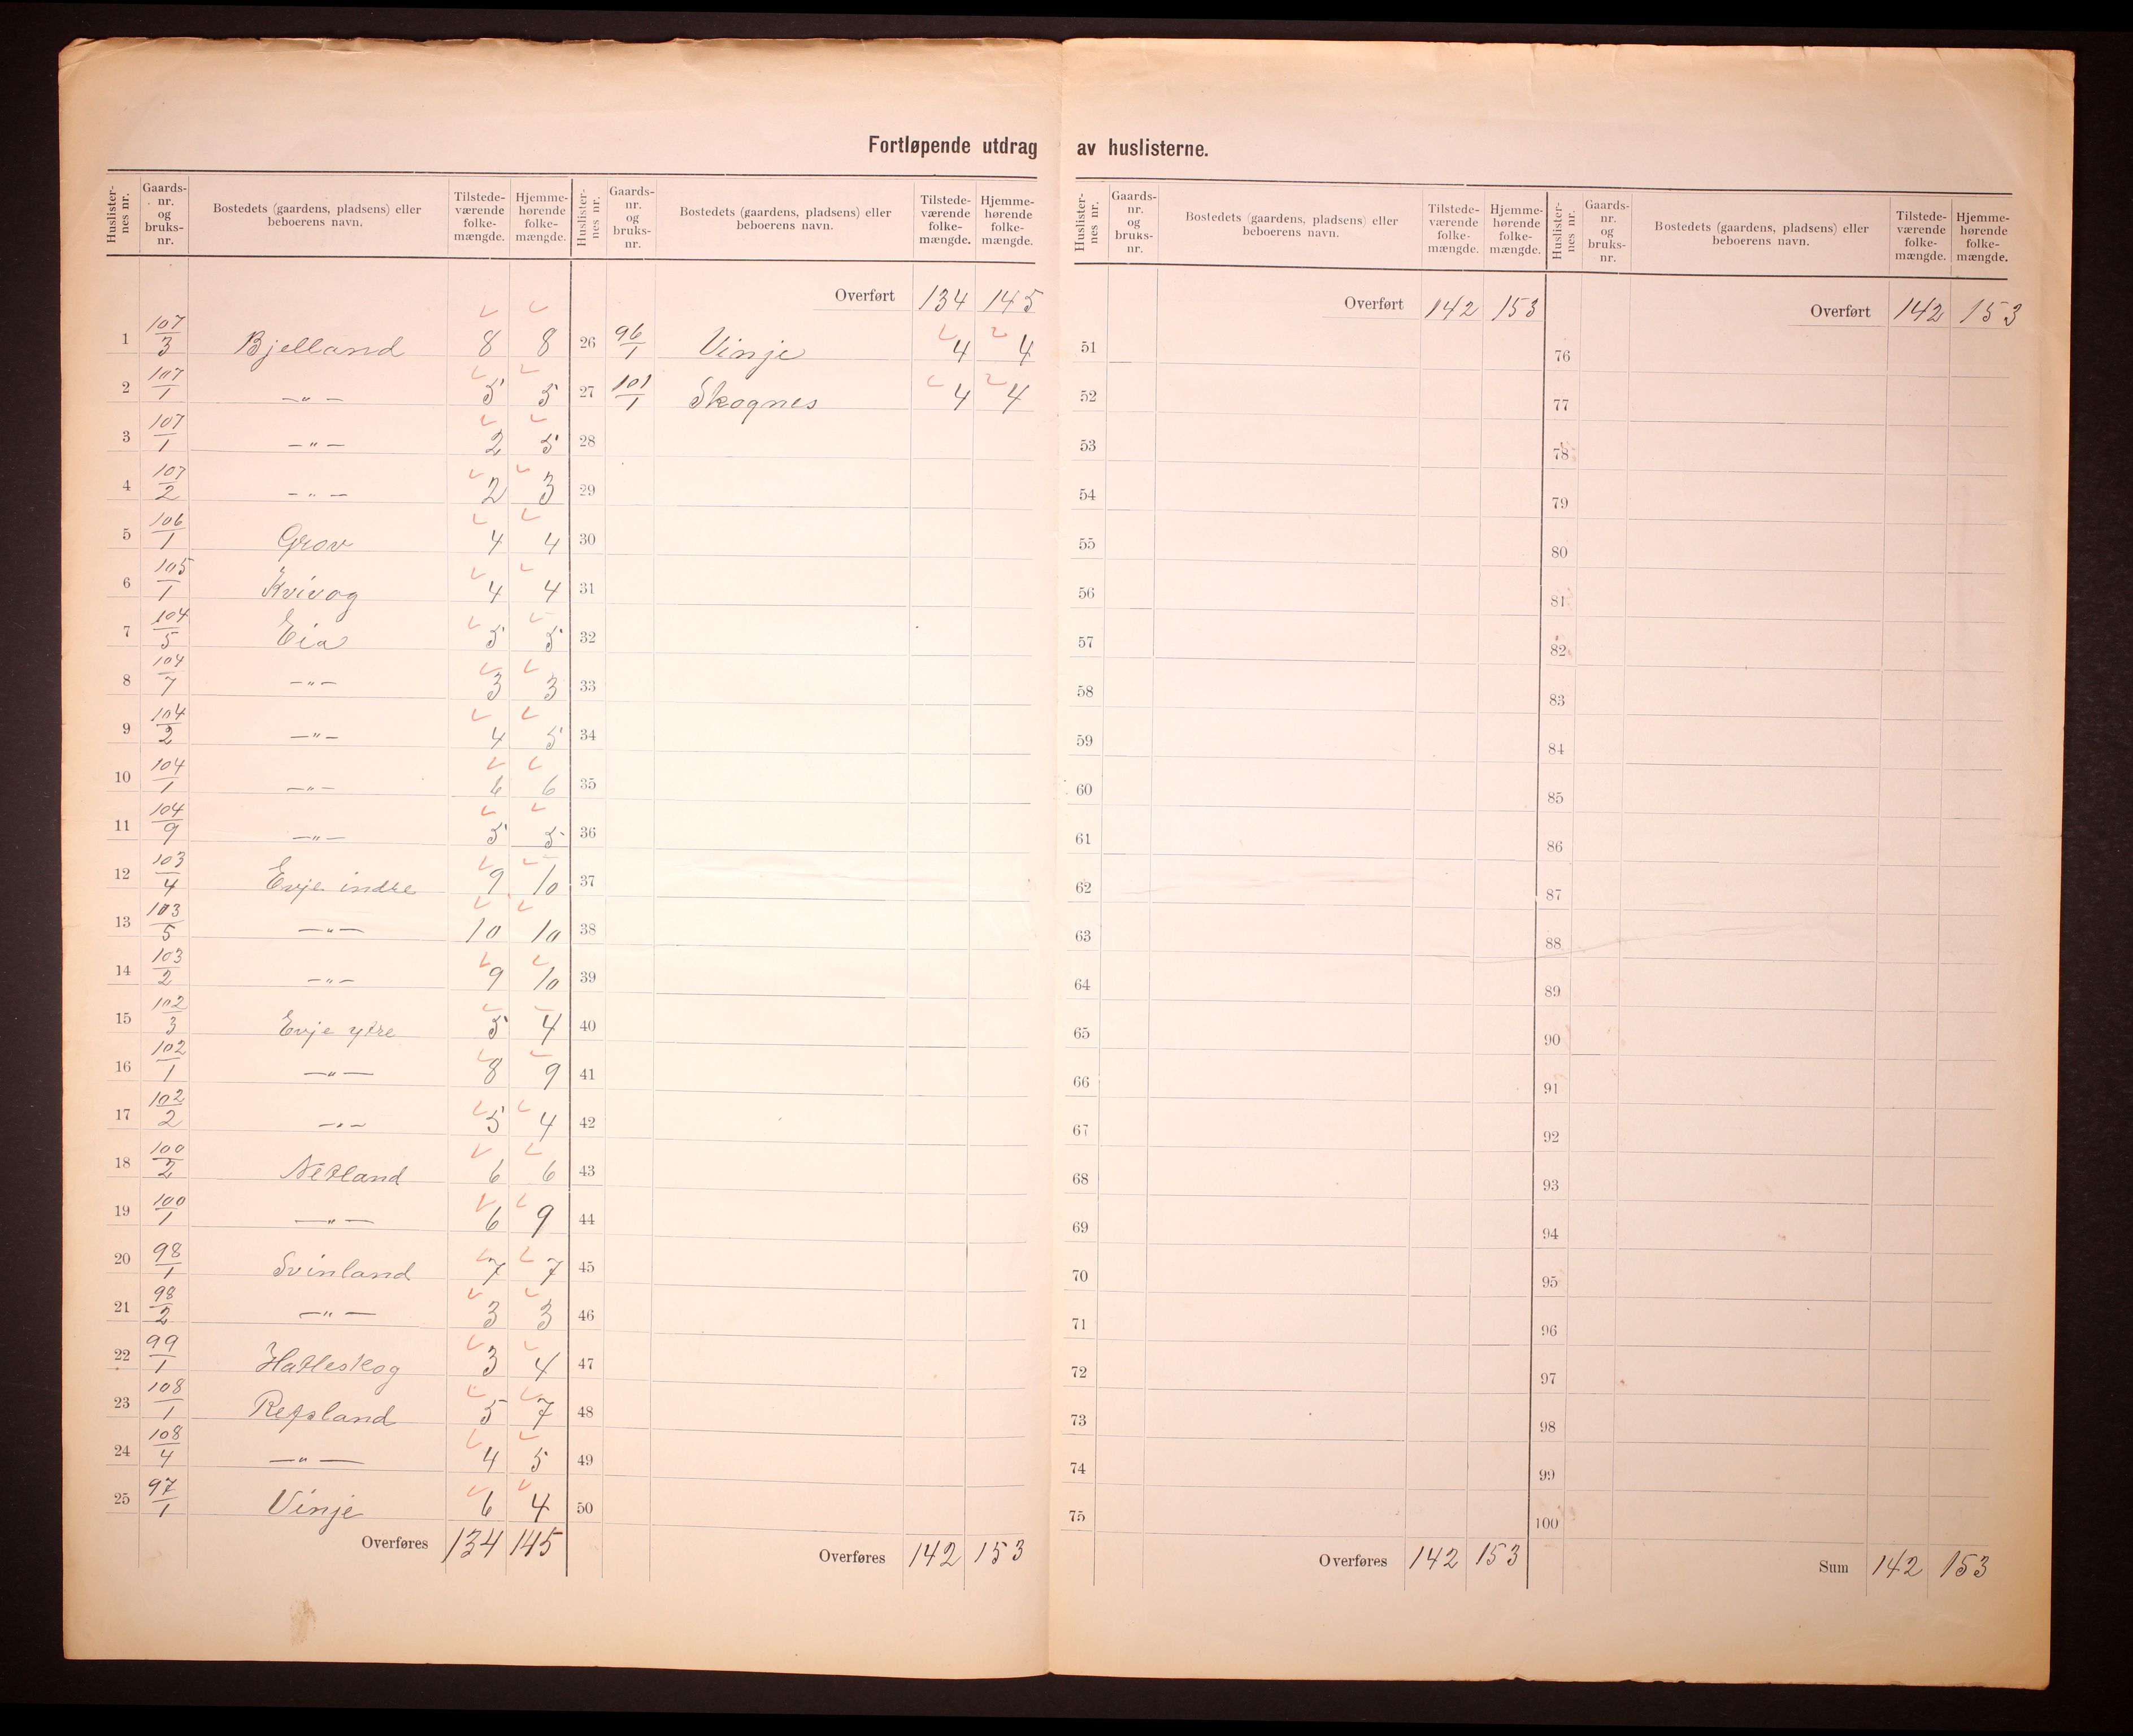 Fortløpende utdrag av huslisterne.
Huslisternes nr. Gaardsnr. og bruksnr. Bostedets (gaardens, pladsens) eller beboerens navn. Tilstedeværende folkemængde. Hjemmehørende folkemængde.
1 107/3 Bjelland 8 8
2 107/1 —"— 5 5
3 107/1 —"— 2 5
4 107/2 —"— 2 3
5 106/1 Grov 4 4
6 105/1 Kvivog 4 4
7 104/5 Eia 5 5
8 104/7 —"— 3 3
9 104/2 —"— 4 5
10 104/1 —"— 6 6
11 104/9 —"— 5 5
12 103/4 Evje indre 9 10
13 103/5 —"— 10 10
14 103/2 —"— 9 10
15 102/3 Evje ytre 5 4
16 102/1 —"— 8 9
17 102/2 —"— 5 4
18 100/2 Netland 6 6
19 100/1 —"— 6 9
20 98/1 Svinland 7 7
21 98/2 —"— 3 3
22 99/1 Hatleskog 3 4
23 108/1 Refsland 5 7
24 108/4 —"— 4 5
25 97/1 Vinje 6 4
Overføres 134 145
Huslisternes nr. Gaardsnr. og bruksnr. Bostedets (gaardens, pladsens) eller beboerens navn. Tilstedeværende folkemængde. Hjemmehørende folkemængde.
Overført 134 145
26 96/1 Vinje 4 4
27 101/1 Skognes 4 4
28
29
30
31
32
33
34
35
36
37
38
39
40
41
42
43
44
45
46
47
48
49
50
Overføres 142 153
Huslisternes nr. Gaardsnr. og bruksnr. Bostedets (gaardens, pladsens) eller beboerens navn. Tilstedeværende folkemængde. Hjemmehørende folkemængde.
Overført 142 153
51
52
53
54
55
56
57
58
59
60
61
62
63
64
65
66
67
68
69
70
71
72
73
74
75
Overføres 142 153
Huslisternes nr. Gaardsnr. og bruksnr. Bostedets (gaardens, pladsens) eller beboerens navn. Tilstedeværende folkemængde. Hjemmehørende folkemængde.
Overført 142 153
76
77
78
79
80
81
82
83
84
85
86
87
88
89
90
91
92
93
94
95
96
97
98
99
100
Sum 142 153